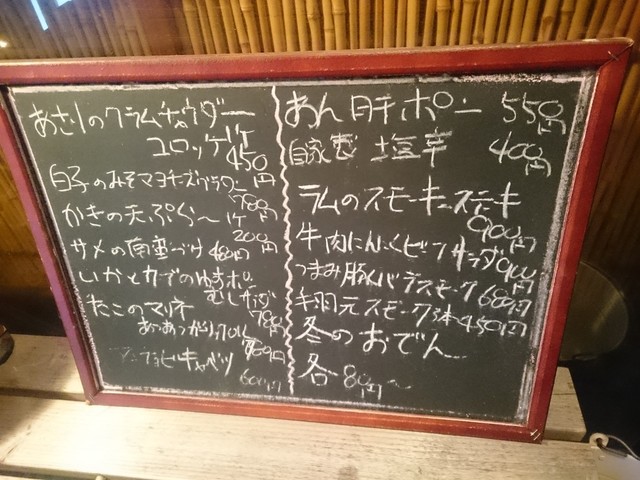 あさりのクラムチャウダー
コロッケ1ケ
450円
白子のみそマヨチーズグラタン
780円
かきの天ぷら〜1ケ
200円
サメの南蛮づけ 480円
いかとカブのゆずポン
むしサラダ
たこのマリネ
780円
キャベツ
600円
あん肝ポン 550円
自家製 塩辛 400円
ラムのスモーキーステーキ
900円
牛肉にんにくビーフサラダ900円
つまみ豚バラスモーク 680円
手羽元スモーク3本 450円
冬のおでん
各 80円〜